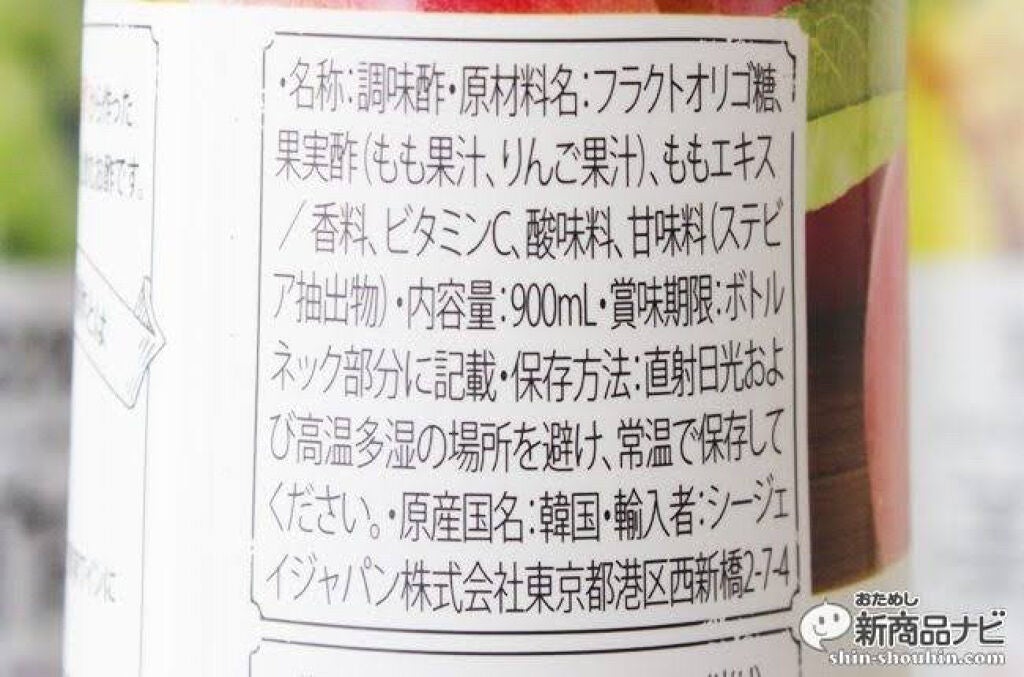 ・名称:調味酢・原材料名:フラクトオリゴ糖、
果実酢(もも果汁、りんご果汁)、ももエキス
/香料、ビタミンC、酸味料、甘味料(ステビ
ア抽出物)・内容量:900mL・賞味期限:ボトル
ネック部分に記載・保存方法:直射日光およ
び高温多湿の場所を避け、常温で保存して
ください。・原産国名:韓国・輸入者:シージェ
イジャパン株式会社東京都港区西新橋2-7-4
作った
お酢です。
おためし
新商品ナビ
shin-shouhin.com